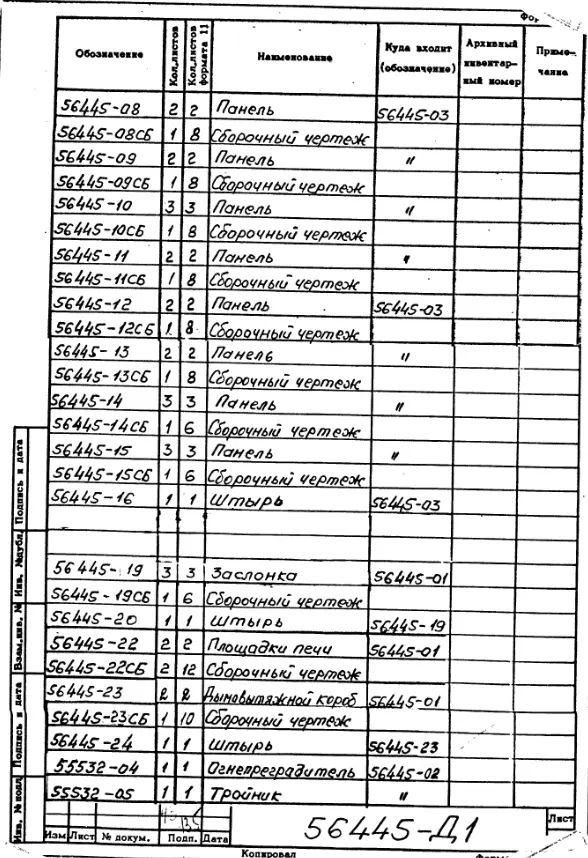 Обозначение Кол.листов Кол.листов формата 11 Наименование Куда входит (обозначение) Архивный инвентар-ный номер Приме-чание
56445-08 2 2 Панель 56445-03
56445-08СБ 1 8 Сборочный чертеж
56445-09 2 2 Панель "
56445-09СБ 1 8 Сборочный чертеж
56445-10 3 3 Панель "
56445-10СБ 1 8 Сборочный чертеж
56445-11 2 2 Панель "
56445-11СБ 1 8 Сборочный чертеж
56445-12 2 2 Панель 56445-03
56445-12СБ 1 8 Сборочный чертеж
56445-13 2 2 Панель "
56445-13СБ 1 8 Сборочный чертеж
56445-14 3 3 Панель "
56445-14СБ 1 6 Сборочный чертеж
56445-15 3 3 Панель "
56445-15СБ 1 6 Сборочный чертеж
56445-16 1 1 Штырь 56445-03
56445-19 3 3 Заслонка 56445-01
56445-19СБ 1 6 Сборочный чертеж
56445-20 1 1 Штырь 56445-19
56445-22 2 2 Площадки печи 56445-01
56445-22СБ 2 12 Сборочный чертеж
56445-23 2 2 Дымовытяжной короб 56445-01
56445-23СБ 1 10 Сборочный чертеж
56445-24 1 1 Штырь 56445-23
55532-04 1 1 Огнепреградитель 56445-02
55532-05 1 1 Тройник "
Подпись и дата
Инв. №дубл.
Взам.инв. №
Подпись и дата
Инв. №подл
56445-Д1
Лист
Изм Лист № докум. Подп. Дата
Копировал